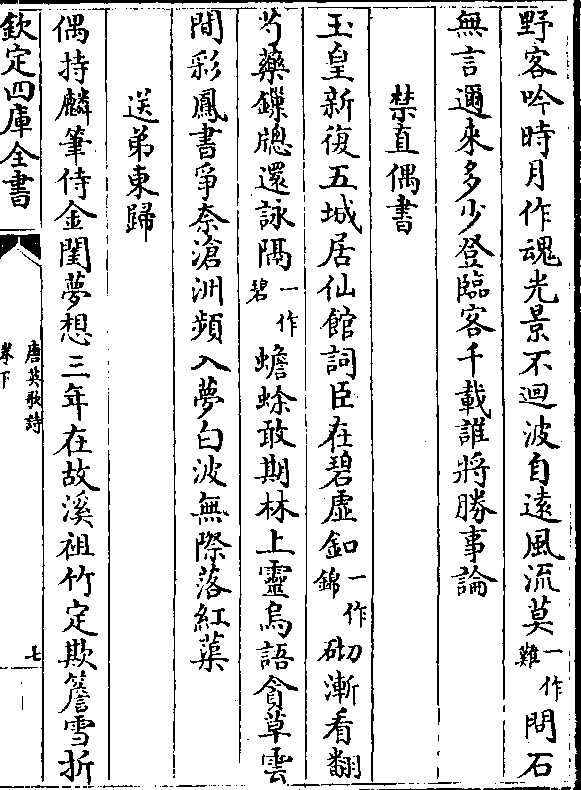 野客吟時月作魂光景不迴波自遠風流莫一作難問石
無言邇來多少登臨客千載誰將勝事論
禁直偶書
玉皇新復五城居仙館詞臣在碧虛釦一作錦砌漸看翻
芍藥鏁牕還詠隔一作碧蟾蜍敢期林上靈烏語貪草雲
間彩鳳書爭奈滄洲頻入夢白波無際落紅蕖
送弟東歸
偶持麟筆侍金閨夢想三年在故溪祖竹定欺簷雪折
欽定四庫全書
唐英歌詩
卷下
七